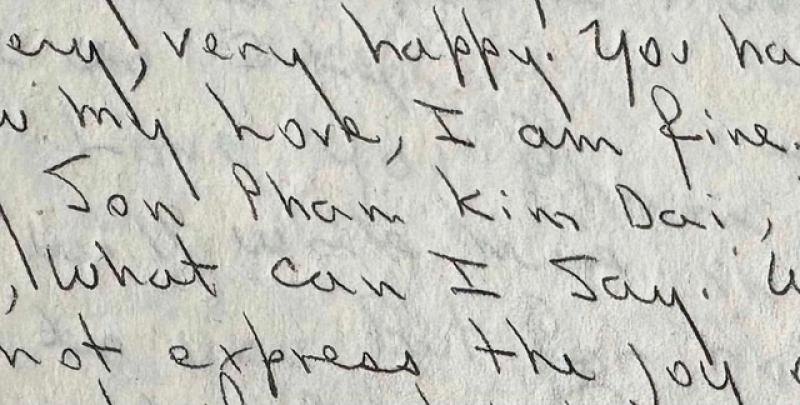 ery, very happy! You ha
w my Love, I am fine.
Son Pham Kim Dai,
, what can I say. W
not express the joy